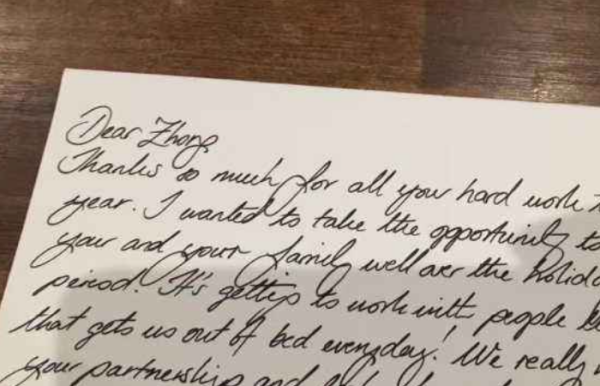 Dear Zhong
Thanks so much for all your hard work
year. I wanted to take the opportunity to
your and your family well over the holida
period. It's getting to work with people
that gets us out of bed everyday! We really
your partnership and